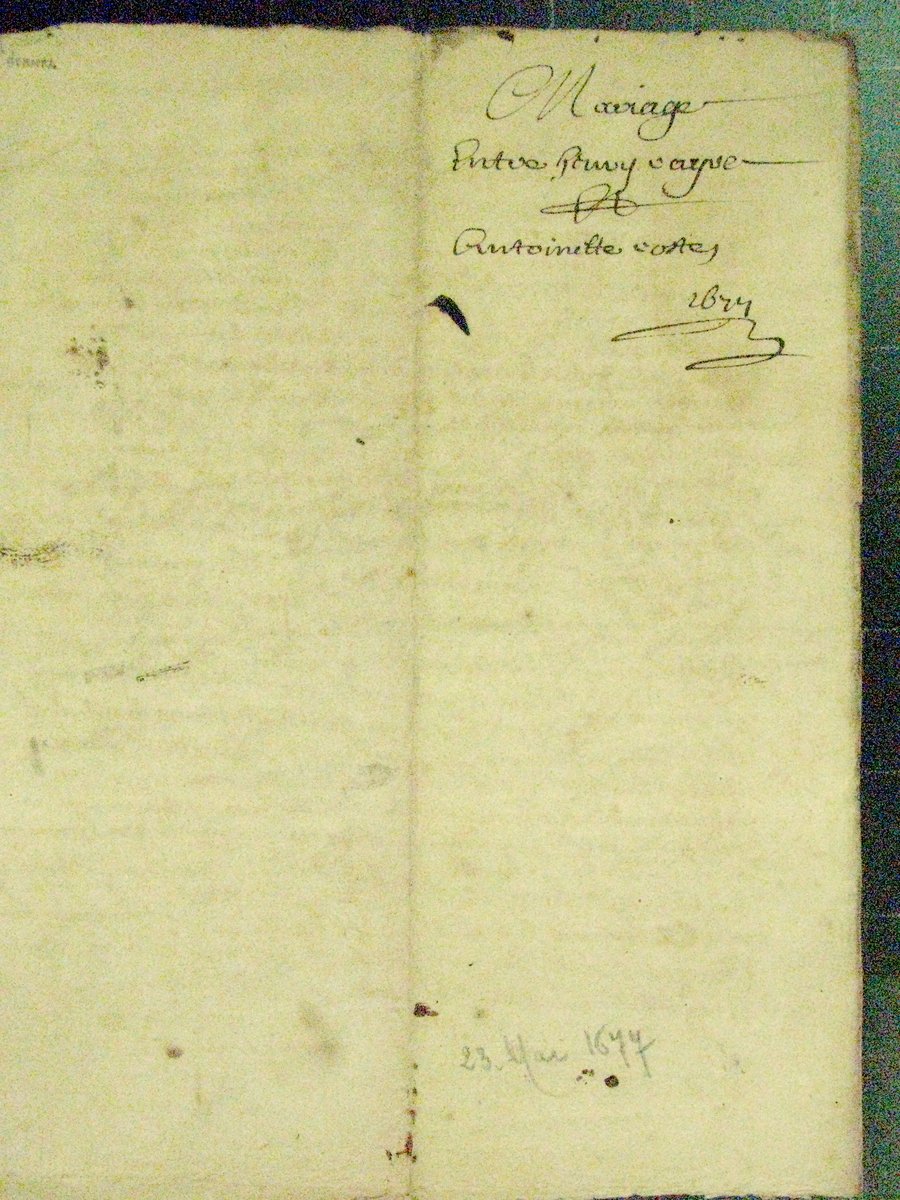 Mariage
Entre henry carpe
Et
Antoinette costes
1677
23 Mai 1677